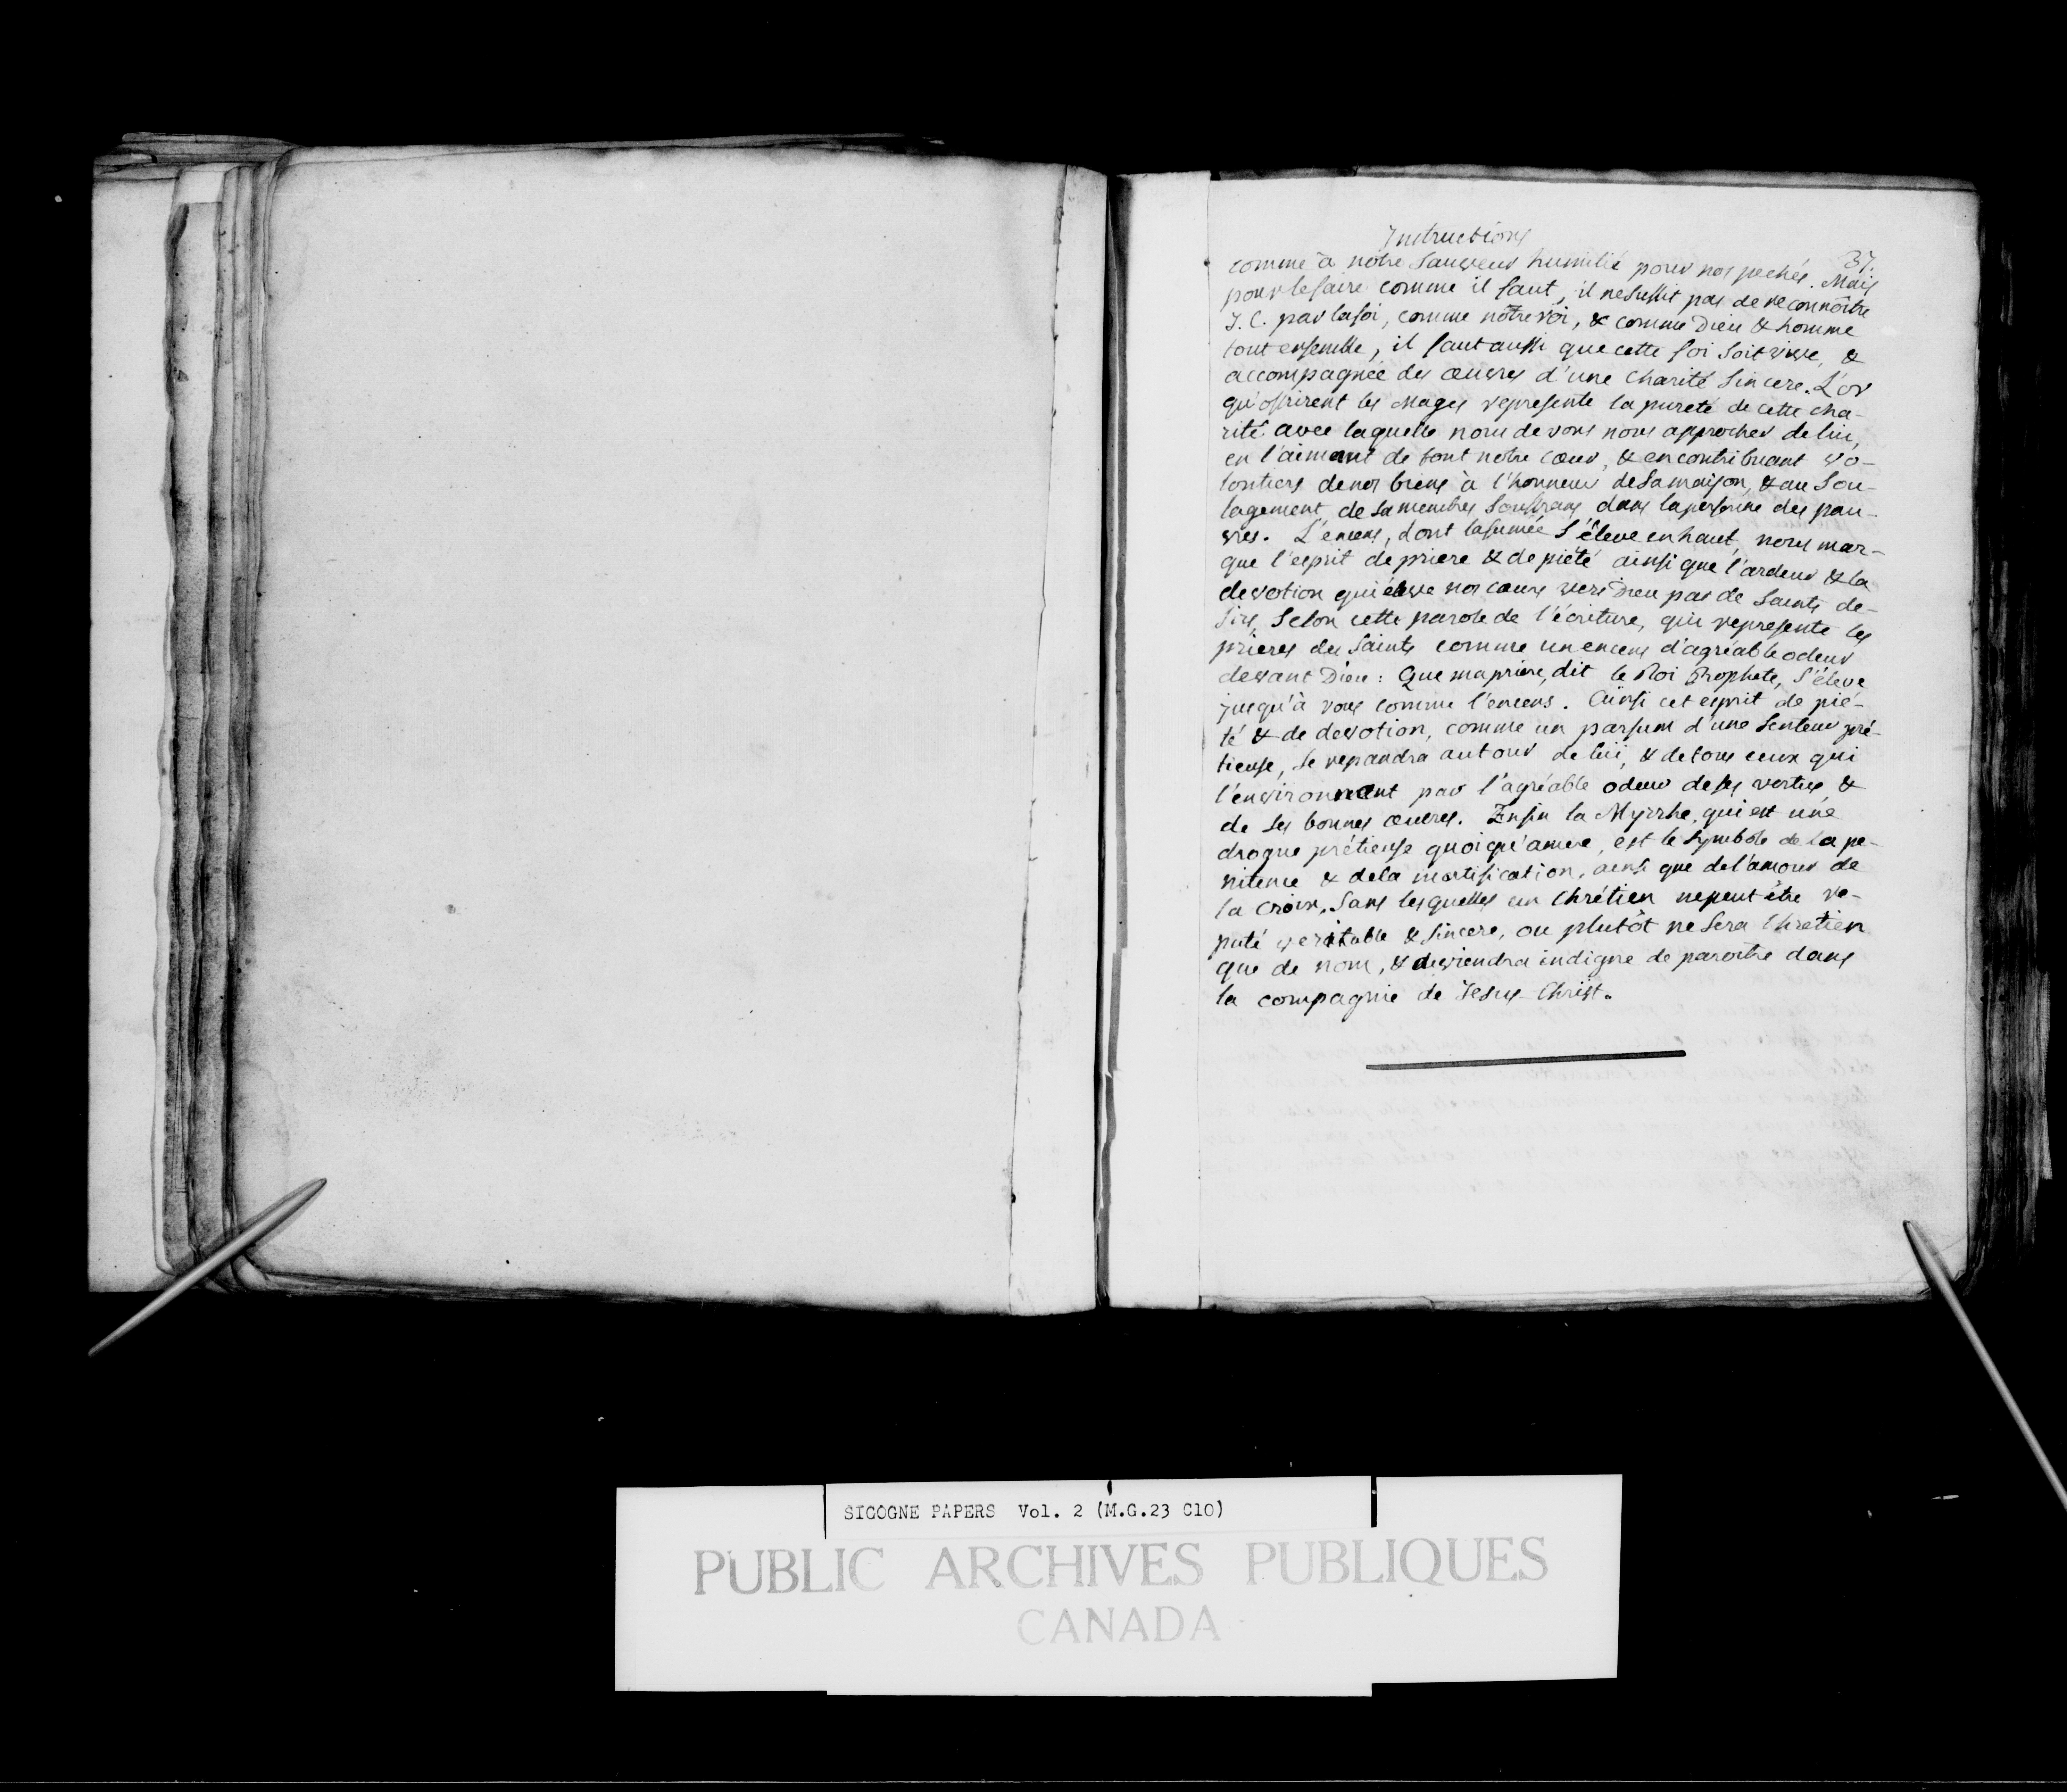 Instructions
37.
comme à nôtre Sauveur humilié pour nos pechés. Mais
pour le faire comme il faut, il ne suffit pas de reconnoître
J. C. par la foi, comme nôtre roi, & comme Dieu & homme
tout ensemble, il faut aussi que cette foi soit vive, &
accompagnée des œuvres d'une charité sincere. L'or
qu'offrirent les Mages represente la pureté de cette cha-
rité avec laquelle nous devons nous approcher de lui,
en l'aimant de tout notre cœur, & en contribuant vo-
lontiers de nos biens à l'honneur de sa maison, & au sou-
lagement de sa membres souffrans dans la personne des pau-
vres. L'encens, dont la fumée s'éleve en haut, nous mar-
que l'esprit de priere & de piété ainsi que l'ardeur & la
devotion qui éleve nos cœurs vers Dieu par de saints de-
sirs, selon cette parole de l'écriture, qui represente les
prieres des Saints comme un encens d'agréable odeur
devant Dieu : Que ma priere, dit le Roi Prophete, s'éleve
jusqu'à vous comme l'encens. Ainsi cet esprit de pié-
té & de devotion, comme un parfum d'une senteur pré-
tieuse, se repandra autour de lui, & de tous ceux qui
l'environnent par l'agréable odeur de ses vertus, &
de ses bonnes œuvres. Enfin la Myrrhe, qui est une
drogue prétieuse quoiqu'amere, est le symbole de la pe-
nitence & de la mortification, ainsi que de l'amour de
la croix, sans lesquelles un Chrétien ne peut être re-
puté veritable & sincere, ou plutôt ne sera Chretien
que de nom, & deviendra indigne de paroître dans
la compagnie de Jesus-Christ.
SICOGNE PAPERS Vol. 2 (M.G.23 C10)
PUBLIC ARCHIVES PUBLIQUES
CANADA